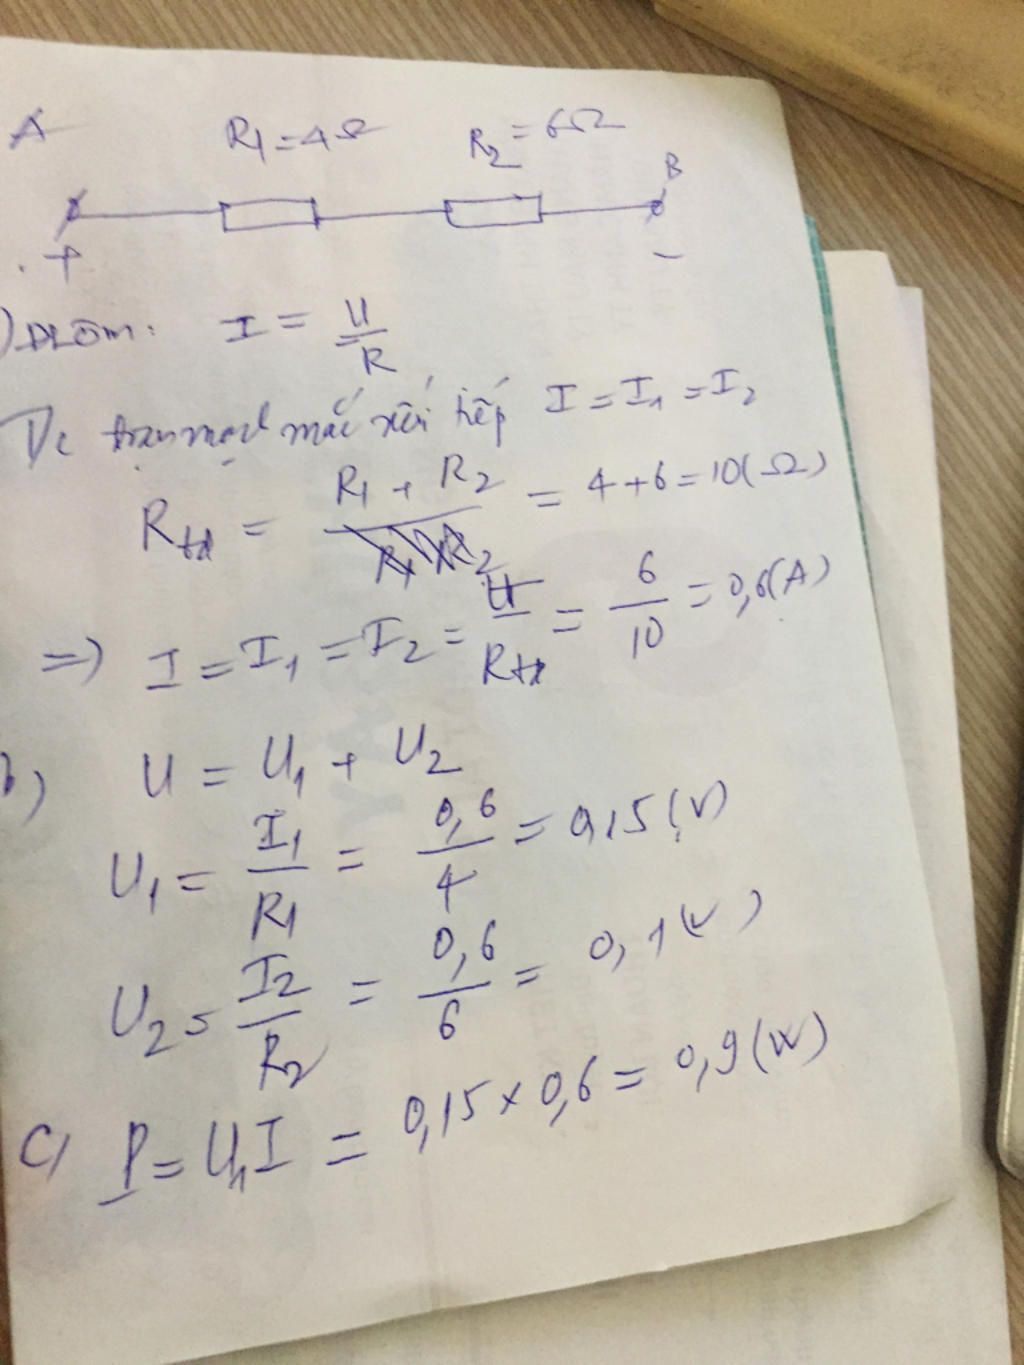 A R₁ = 4Ω R₂ = 6Ω B
+ −
) ĐL Ôm: I = U/R
Vì đoạn mạch mắc nối tiếp I = I₁ = I₂
Rtđ = R₁ + R₂ = 4 + 6 = 10(Ω)
=> I = I₁ = I₂ = U/Rtđ = 6/10 = 0,6(A)
b) U = U₁ + U₂
U₁ = I₁/R₁ = 0,6/4 = 0,15(V)
U₂ = I₂/R₂ = 0,6/6 = 0,1(V)
c) P = U₁I = 0,15 × 0,6 = 0,9(W)